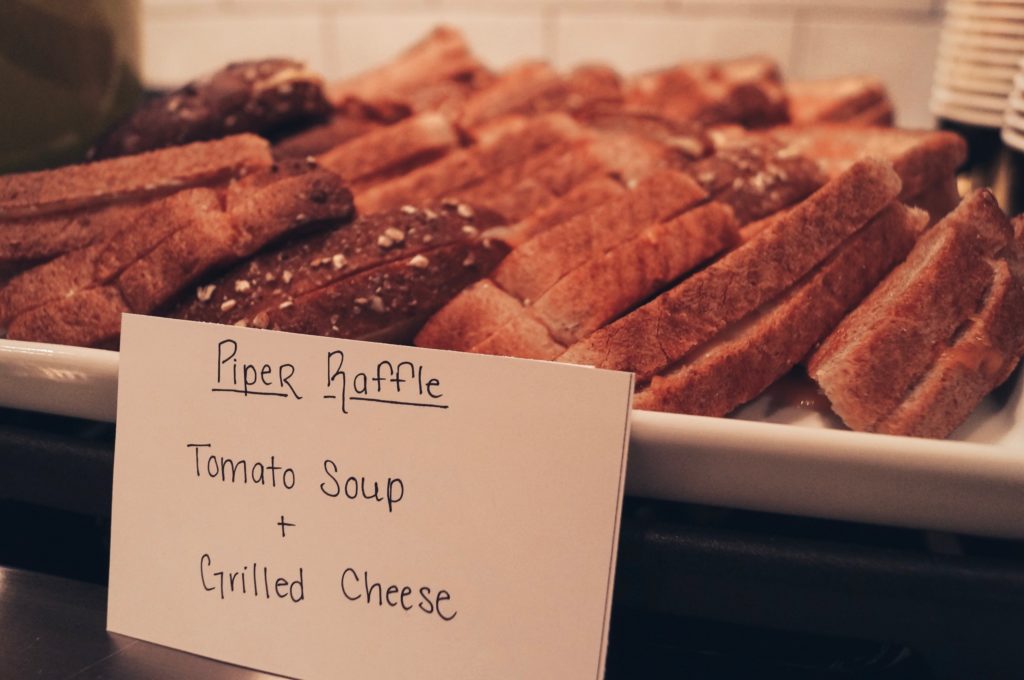 Piper Raffle
Tomato Soup
+
Grilled Cheese